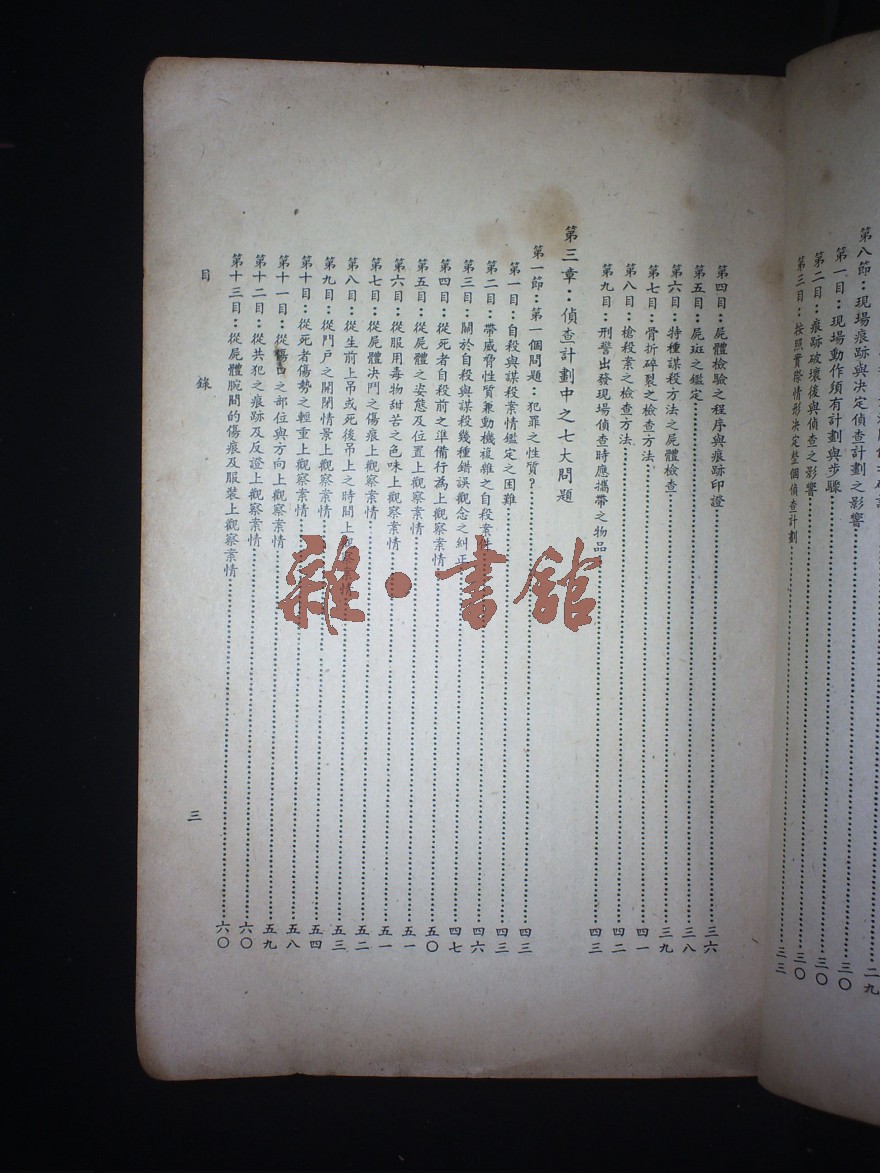 第八節：現場痕跡與決定偵查計劃之影響……二九
第一目：現場動作須有計劃與步驟……三〇
第二目：痕跡破壞後與偵查之影響……三〇
第三目：按照實際情形決定整個偵查計劃……三三
第四目：屍體檢驗之程序與痕跡印證……三六
第五目：屍斑之鑑定……三八
第六目：特種謀殺方法之屍體檢查……三九
第七目：骨折碎裂之檢查方法……四一
第八目：槍殺案之檢查方法……四二
第九目：刑警出發現場偵查時應攜帶之物品……四三
第三章：偵查計劃中之七大問題
第一節：第一個問題：犯罪之性質？……四三
第一目：自殺與謀殺案情鑑定之困難……四三
第二目：帶威脅性質兼動機複雜之自殺案件……四六
第三目：關於自殺與謀殺幾種錯誤觀念之糾正……四七
第四目：從死者自殺前之準備行為上觀察案情……五〇
第五目：從屍體之姿態及位置上觀察案情……五一
第六目：從服用毒物甜苦之色味上觀察案情……五一
第七目：從屍體決鬥之傷痕上觀察案情……五二
第八目：從生前上吊或死後吊上之時間上觀察案情……五三
第九目：從門戶之開閉情景上觀察案情……五四
第十目：從死者傷勢之輕重上觀察案情……五八
第十一目：從傷口之部位與方向上觀察案情……五九
第十二目：從共犯之痕跡及反證上觀察案情……六〇
第十三目：從屍體腕間的傷痕及服裝上觀察案情……六〇
目錄
三
雜·書館